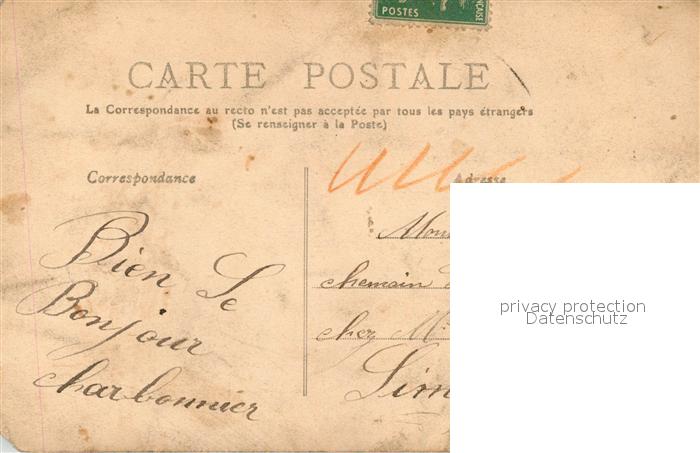 POSTES
CARTE POSTALE
La Correspondance au recto n'est pas acceptée par tous les pays étrangers
(Se renseigner à la Poste)
Correspondance
Adresse
Bien Le
Bonjour
Charbonnier
chemain
chez M.
privacy protection
Datenschutz